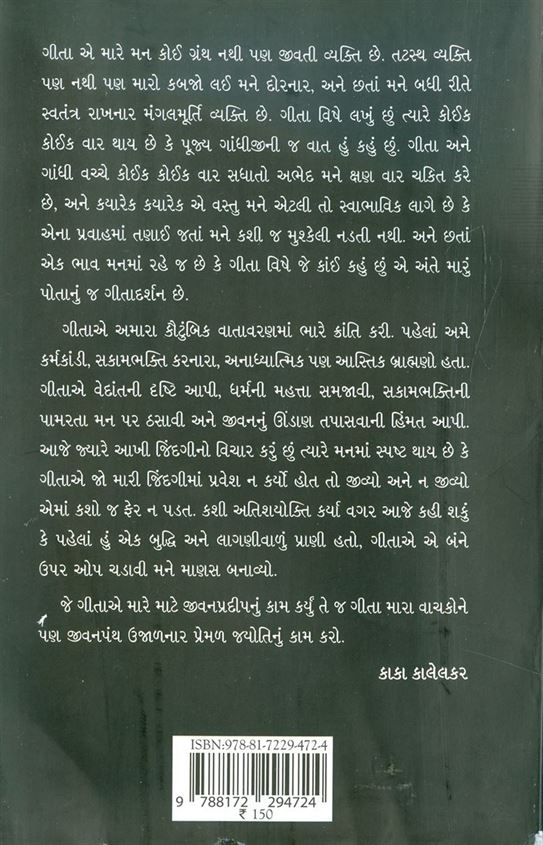 ગીતા એ મારે મન કોઈ ગ્રંથ નથી પણ જીવતી વ્યક્તિ છે. તટસ્થ વ્યક્તિ
પણ નથી પણ મારો કબજો લઈ મને દોરનાર, અને છતાં મને બધી રીતે
સ્વતંત્ર રાખનાર મંગલમૂર્તિ વ્યક્તિ છે. ગીતા વિષે લખું છું ત્યારે કોઈક
કોઈક વાર થાય છે કે પૂજ્ય ગાંધીજીની જ વાત હું કહું છું. ગીતા અને
ગાંધી વચ્ચે કોઈક કોઈક વાર સધાતો અભેદ મને ક્ષણ વાર ચકિત કરે
છે, અને કયારેક કયારેક એ વસ્તુ મને એટલી તો સ્વાભાવિક લાગે છે કે
એના પ્રવાહમાં તણાઈ જતાં મને કશી જ મુશ્કેલી નડતી નથી. અને છતાં
એક ભાવ મનમાં રહે જ છે કે ગીતા વિષે જે કાંઈ કહું છું એ અંતે મારું
પોતાનું જ ગીતાદર્શન છે.
ગીતાએ અમારા કૌટુંબિક વાતાવરણમાં ભારે ક્રાંતિ કરી. પહેલાં અમે
કર્મકાંડી, સકામભક્તિ કરનારા, અનાધ્યાત્મિક પણ આસ્તિક બ્રાહ્મણો હતા.
ગીતાએ વેદાંતની દૃષ્ટિ આપી, ધર્મની મહત્તા સમજાવી, સકામભક્તિની
પામરતા મન પર ઠસાવી અને જીવનનું ઊંડાણ તપાસવાની હિંમત આપી.
આજે જ્યારે આખી જિંદગીનો વિચાર કરું છું ત્યારે મનમાં સ્પષ્ટ થાય છે કે
ગીતાએ જો મારી જિંદગીમાં પ્રવેશ ન કર્યો હોત તો જીવ્યો અને ન જીવ્યો
એમાં કશો જ ફેર ન પડત. કશી અતિશયોક્તિ કર્યા વગર આજે કહી શકું
કે પહેલાં હું એક બુદ્ધિ અને લાગણીવાળું પ્રાણી હતો, ગીતાએ એ બંને
ઉપર ઓપ ચડાવી મને માણસ બનાવ્યો.
જે ગીતાએ મારે માટે જીવનપ્રદીપનું કામ કર્યું તે જ ગીતા મારા વાચકોને
પણ જીવનપંથ ઉજાળનાર પ્રેમળ જ્યોતિનું કામ કરો.
કાકા કાલેલકર
ISBN:978-81-7229-472-4
9 788172 294724
₹ 150